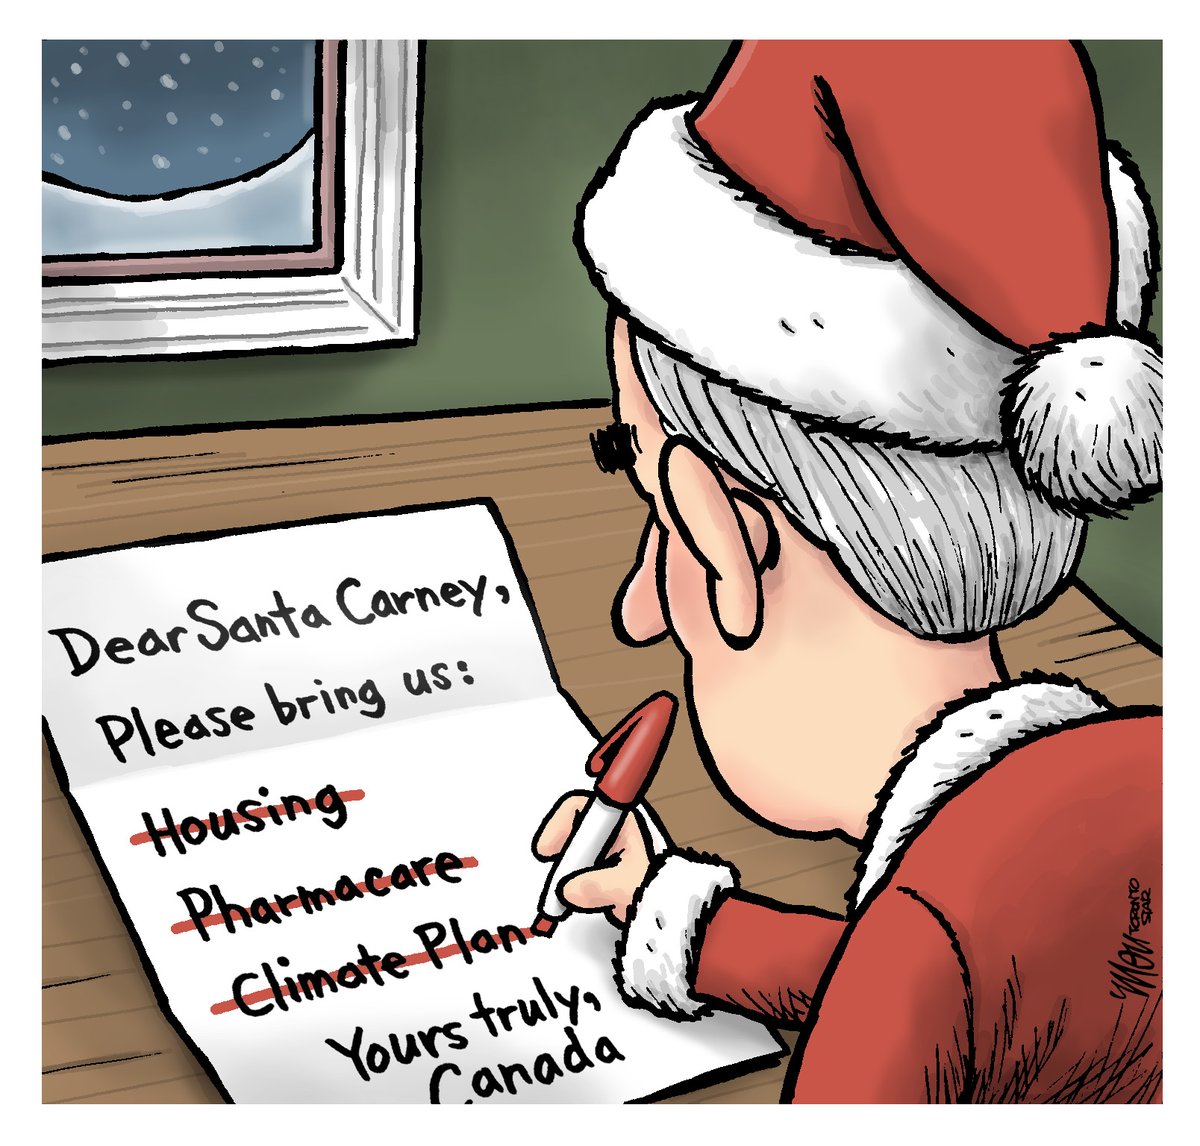 Dear Santa Carney,
Please bring us:
Housing
Pharmacare
Climate Plan
Yours truly,
Canada
TORONTO
STAR